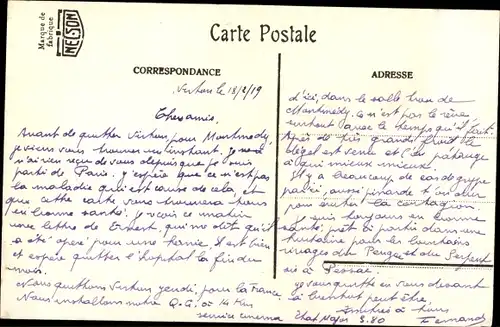 Marque de
fabrique
NELSON
Carte Postale
CORRESPONDANCE
ADRESSE
Virton le 18/2/19
Chers amis.
Avant de quitter Virton, pour Montmédy,
je viens vous trouver un instant. Je
n'ai rien reçu de vous depuis que je suis
parti de Paris. J'espère que ce n'est pas
la maladie qui est cause de cela, et
que cette carte vous trouvera tous
en bonne santé. Je reçois ce matin
une lettre de Ernest, qui me dit qu'il
a été opéré pour une hernie. Il est bien
et espère quitter l'hôpital la fin du
mois.
Nous quittons Virton jeudi, pour la France
Nous installons notre Q.G. à 14 km
service cinema
d'ici, dans le salle trou de
Montmédy. Ce n'est pas le rêve
surtout avec le temps qu'il fait.
Après de très grands froids le
dégel est venu et l'on patauge
à qui mieux mieux.
Il y a beaucoup de cas de grippe
par ici, aussi
pour éviter la contagion
Je suis toujours en bonne
santé, prêt à partir dans une
huitaine pour les lointains
rivages du Peugue et du Serpent
à Pessac.
Je vous quitte en vous disant
à bientôt peut être.
à tous
Etat Major S. 80 Fernand